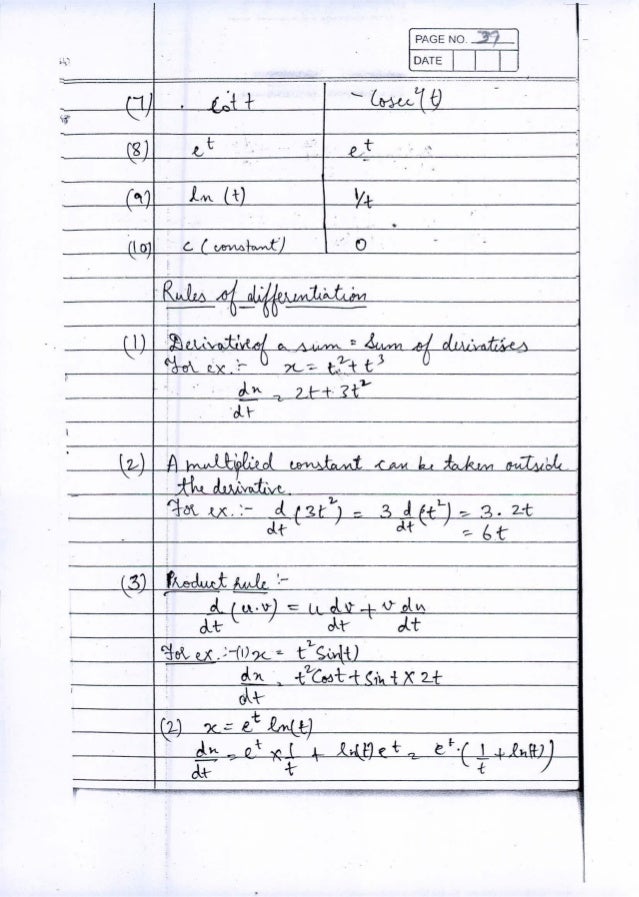 PAGE NO. 39
DATE
(7) cot t - Cosec²(t)
(8) e^t e^t
(9) ln (t) 1/t
(10) c (constant) 0
Rules of differentiation
(1) Derivative of a sum = Sum of derivatives
For ex. :- x = t² + t³
dx/dt = 2t + 3t²
(2) A multiplied constant can be taken outside
the derivative.
For ex. :- d/dt (3t²) = 3 d/dt (t²) = 3. 2t
= 6t
(3) Product rule :-
d/dt (u.v) = u dv/dt + v du/dt
For ex. :- (1) x = t² Sin(t)
dx/dt = t² Cost + Sin t × 2t
(2) x = e^t ln(t)
dx/dt = e^t × 1/t + ln(t) e^t = e^t . (1/t + ln(t))